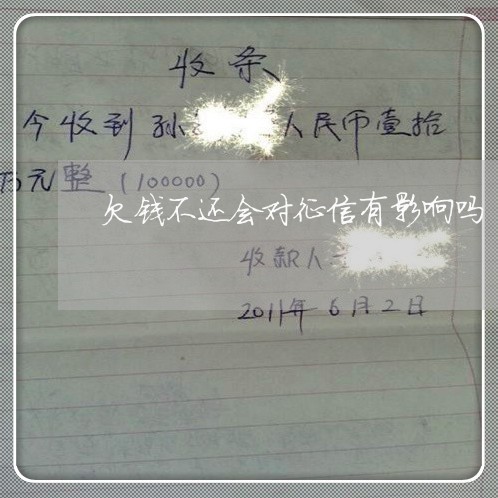 收条
今收到孙 人民币壹拾
万元整(100000)
欠钱不还会对征信有影响吗
收款人
2011年6月2日